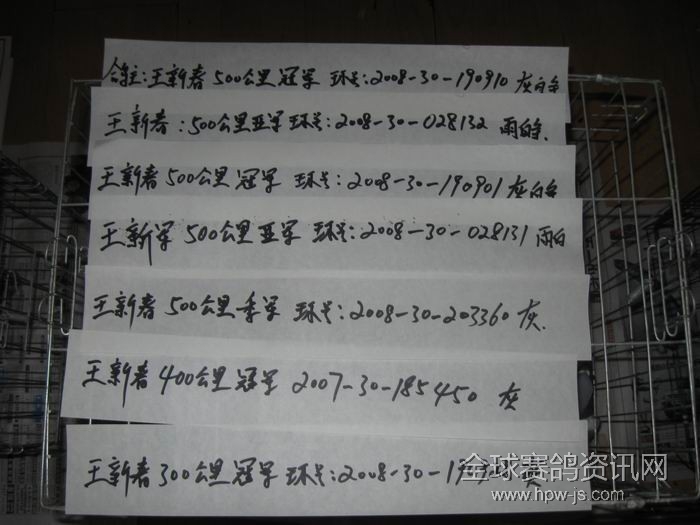 鸽主:王新春 500公里冠军 环号:2008-30-190910 灰白条
王新春:500公里亚军 环号:2008-30-028132 雨白条.
王新春 500公里冠军 环号:2008-30-190901 灰白条
王新军 500公里亚军 环号:2008-30-028131 雨白
王新春 500公里季军 环号:2008-30-203360 灰.
王新春 400公里冠军 2007-30-185450 灰
王新春 300公里冠军 环号:2008-30-
全球赛鸽资讯网
www.hpw-js.com